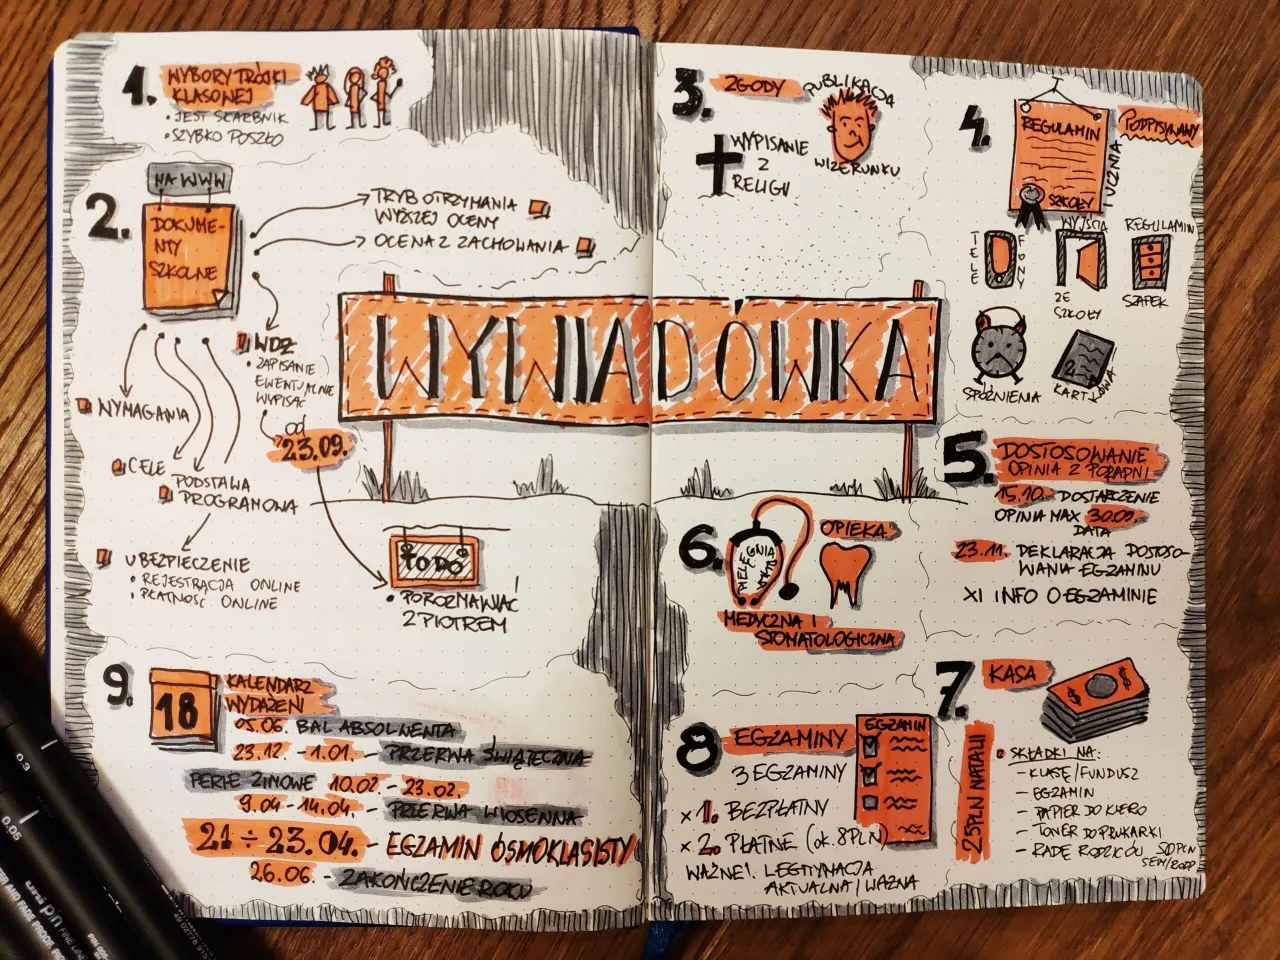 WYWIADÓWKA
1. WYBORY TRÓJKI
KLASOWEJ
• JEST SCARBNIK
• SZYBKO POSZŁO
2. NA WWW
DOKUME-
NTY
SZKOLNE
TRYB OTRZYMANIA
WYŻSZEJ OCENY
OCENA Z ZACHOWANIA
WDŻ
• ZAPISANIE
EWENTUALNIE
WYPISAĆ
od
23.09.
WYMAGANIA
CELE
PODSTAWA
PROGRAMOWA
UBEZPIECZENIE
• REJESTRACJA ONLINE
• PŁATNOŚĆ ONLINE
TO DO
• POROZMAWIAĆ
Z PIOTREM
3. ZGODY
PUBLIKACJA
WIZERUNKU
WYPISANIE
Z
RELIGII
4. REGULAMIN
SZKOŁY
UCZNIA
PODPISYWANY
TELE
FONY
WYJŚCIA
ZE
SZKOŁY
REGULAMIN
SZAFEK
SPÓŹNIENIA
KARTKÓWKA
5. DOSTOSOWANIE
OPINIA Z PORADNI
15.10. DOSTARCZENIE
OPINIA MAX 30.09.
DATA
23.11. DEKLARACJA DOSTOSO-
WANIA EGZAMINU
XI INFO O EGZAMINIE
6. PIELĘGNIARKA
OPIEKA
MEDYCZNA I
STOMATOLOGICZNA
7. KASA
$ $
25PLN NATALII
SKŁADKI NA:
– KLASĘ/FUNDUSZ
– EGZAMIN
– PAPIER DO KSERO
– TONER DO DRUKARKI
– RADĘ RODZICÓW 50PLN
SEM/RODZ
8 EGZAMINY
EGZAMIN
3 EGZAMINY
x 1. BEZPŁATNY
x 2. PŁATNE (ok. 8PLN)
WAŻNE! LEGITYMACJA
AKTUALNA/WAŻNA
9. 18
KALENDARZ
WYDAŻENI
05.06. BAL ABSOLWENTA
23.12. – 1.01. – PRZERWA ŚWIĄTECZNA
FERIE ZIMOWE 10.02 – 23.02.
9.04 – 14.04. – PRZERWA WIOSENNA
21 ÷ 23.04. – EGZAMIN ÓSMOKLASISTY
26.06. – ZAKOŃCZENIE ROKU
0.3
0.05
uni pin FINE LINE